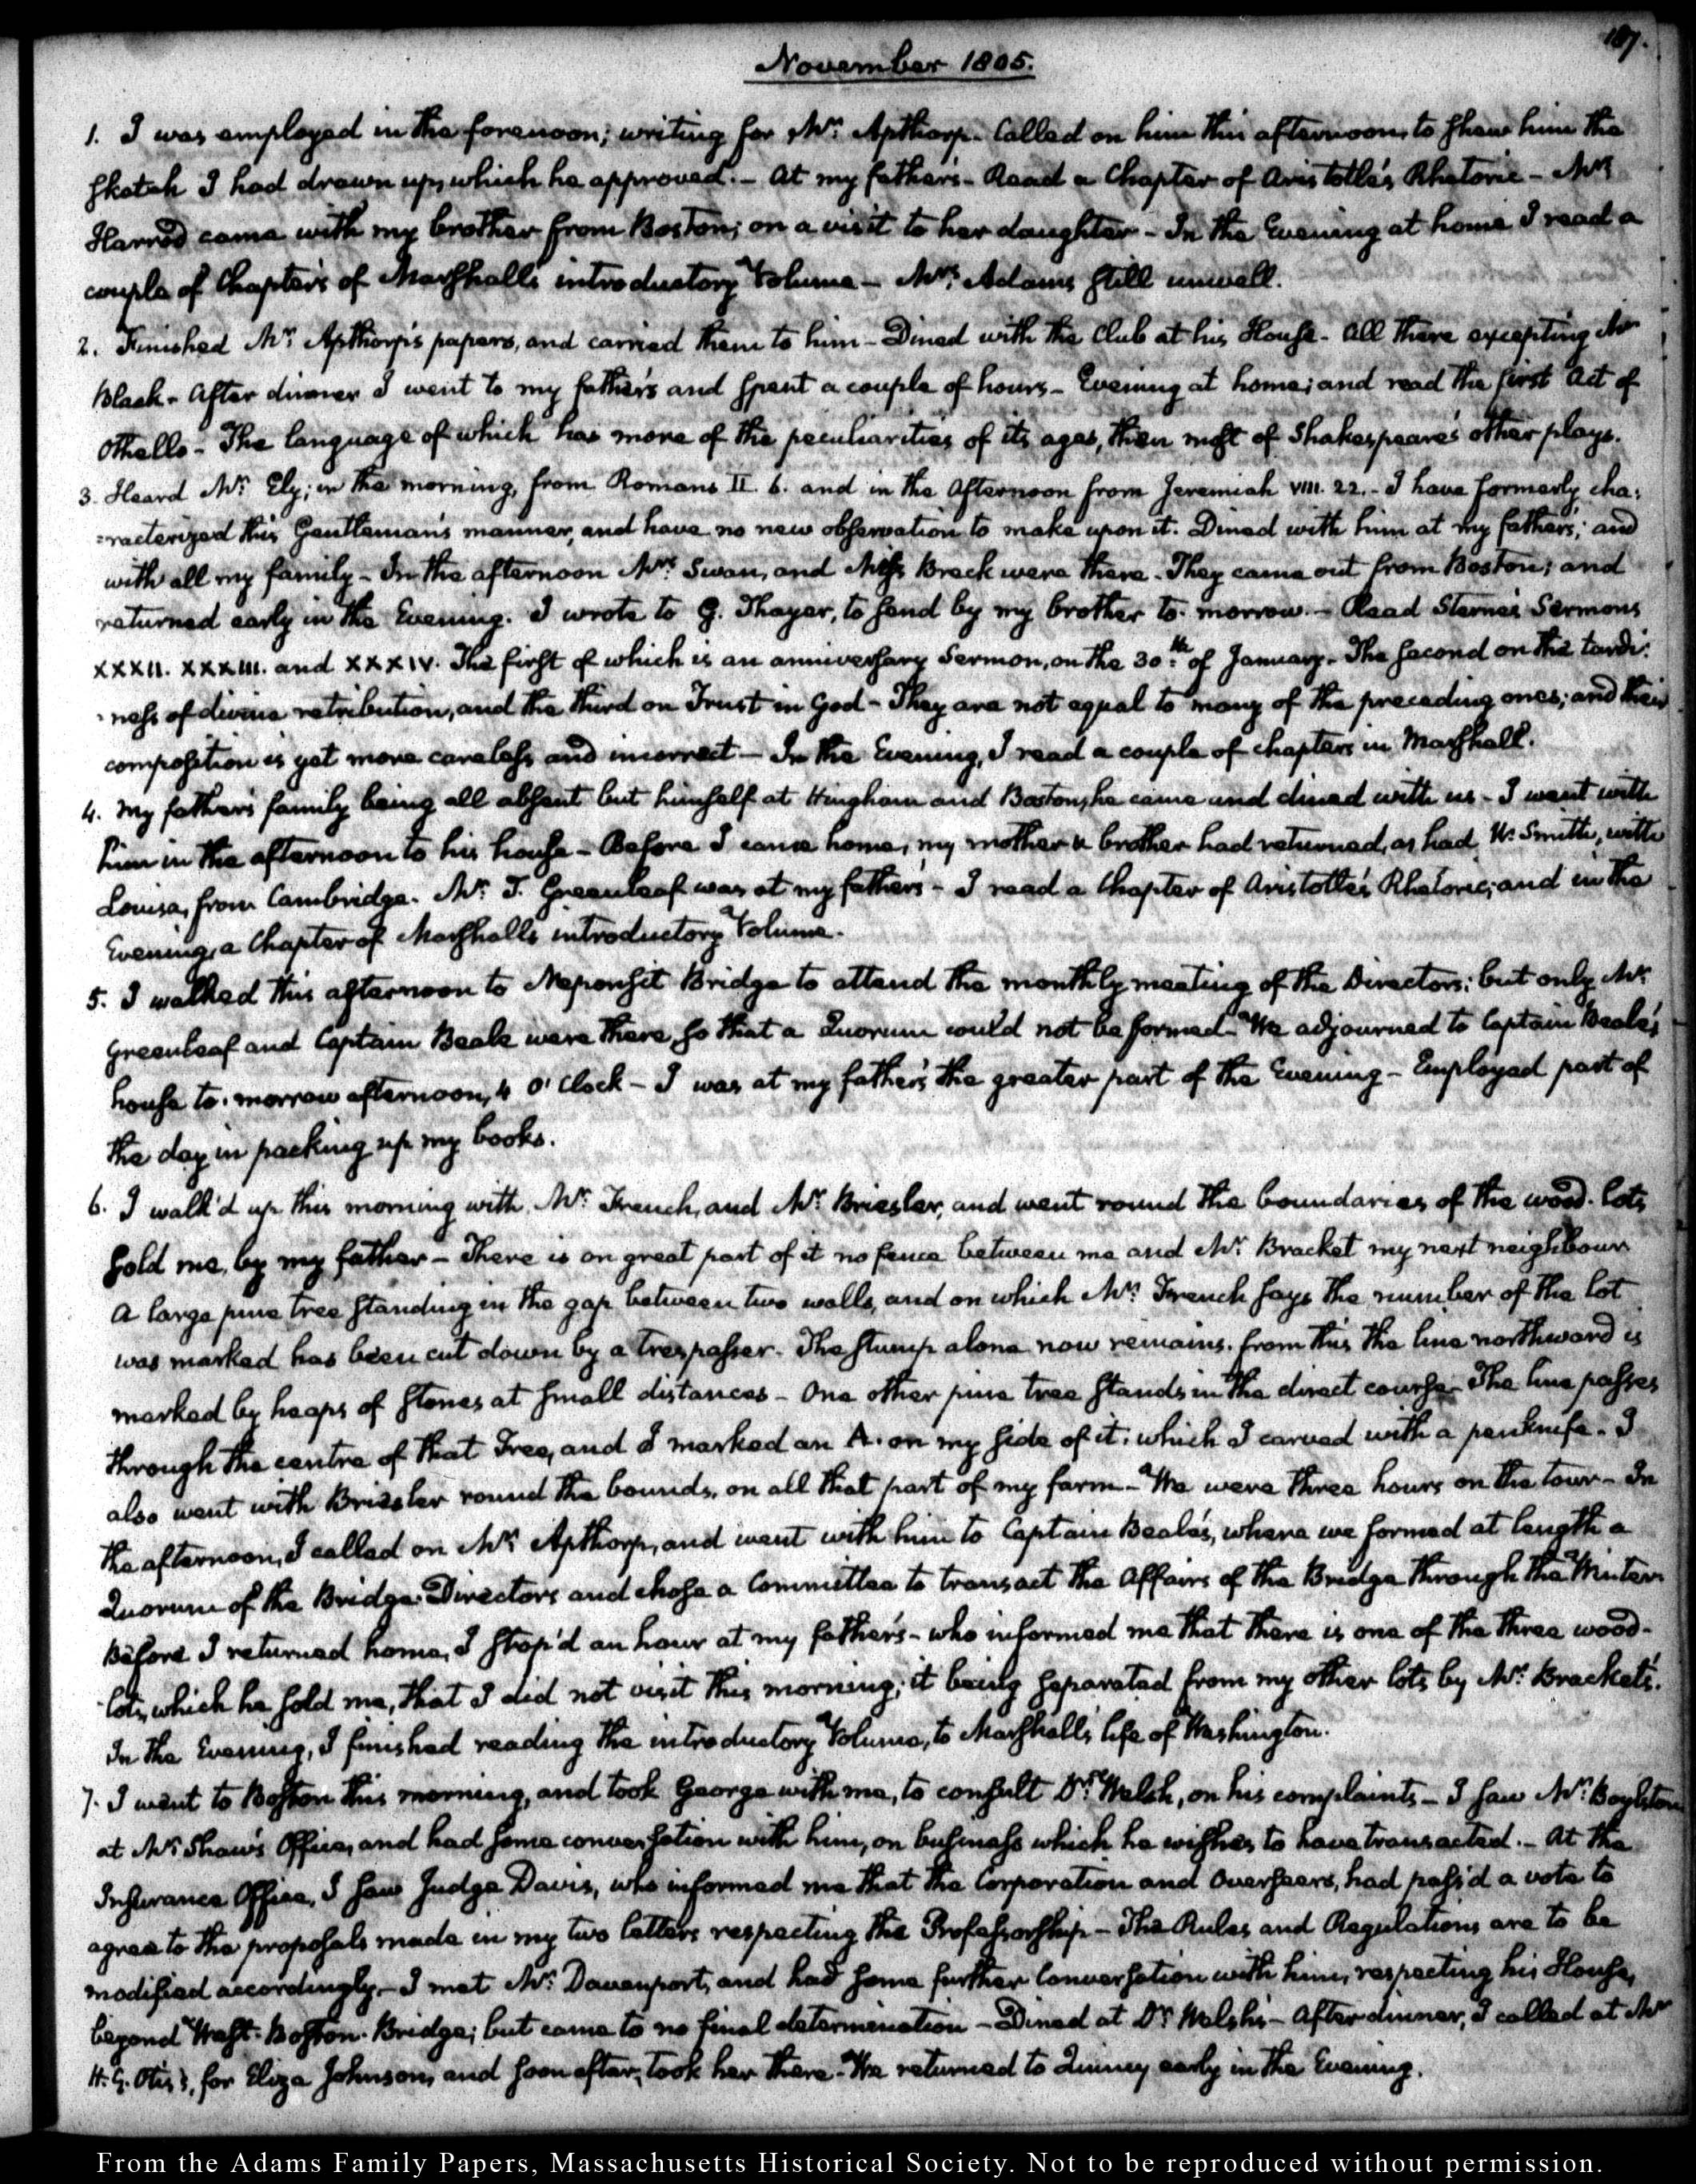 187.
November 1805.
1. I was employed in the forenoon; writing for Mr. Apthorp. Called on him this afternoon, to shew him the
sketch I had drawn up, which he approved. — At my father's — Read a Chapter of Aristotle's Rhetoric — Mrs
Harrod came with my brother from Boston; on a visit to her daughter — In the Evening at home I read a
couple of Chapters of Marshall's introductory Volume — Mrs. Adams still unwell.
2. Finished Mr. Apthorp's papers, and carried them to him — Dined with the Club at his House — All there excepting Mr
Black — After dinner I went to my father's and spent a couple of hours — Evening at home; and read the first Act of
Othello — The language of which has more of the peculiarities of its age, than most of Shakespeare's other plays.
3. Heard Mr. Ely; in the morning, from Romans II. 6. and in the Afternoon from Jeremiah VIII. 22. — I have formerly cha:
:racterized this Gentleman's manner, and have no new observation to make upon it. Dined with him at my father's; and
with all my family — In the afternoon Mrs. Swan, and Miss Breck were there. They came out from Boston; and
returned early in the Evening. I wrote to G. Thayer, to send by my brother to-morrow. — Read Sterne's Sermons
XXXII. XXXIII. and XXXIV. The first of which is an anniversary Sermon, on the 30.th of January. The second on the tardi:
:ness of divine retribution, and the third on Trust in God — They are not equal to many of the preceding ones; and their
composition is yet more careless and incorrect — In the Evening, I read a couple of chapters in Marshall.
4. My father's family being all absent but himself at Hingham and Boston, he came and dined with us — I went with
him in the afternoon to his house — Before I came home, my mother & brother had returned, as had W. Smith, with
Louisa, from Cambridge. Mr. T. Greenleaf was at my father's — I read a Chapter of Aristotle's Rhetoric; and in the
Evening, a Chapter of Marshall's introductory Volume.
5. I walked this afternoon to Neponsit Bridge to attend the monthly meeting of the Directors; but only Mr.
Greenleaf and Captain Beale were there, so that a Quorum could not be formed — We adjourned to Captain Beale's
house to-morrow afternoon, 4 O'Clock — I was at my father's the greater part of the Evening — Employed part of
the day in packing up my books.
6. I walk'd up this morning with Mr. French, and Mr. Briesler, and went round the boundaries of the wood-lots
sold me, by my father — There is on great part of it no fence between me and Mr. Bracket my next neighbour
A large pine tree standing in the gap between two walls, and on which Mr. French says the number of the lot
was marked has been cut down by a trespasser. The stump alone now remains. from this the line northward is
marked by heaps of stones at small distances — One other pine tree stands in the direct course — The line passes
through the centre of that Tree, and I marked an A. on my side of it: which I carved with a penknife. I
also went with Briesler round the bounds, on all that part of my farm — We were three hours on the tour — In
the afternoon, I called on Mr. Apthorp, and went with him to Captain Beale's, where we formed at length a
Quorum of the Bridge Directors and chose a Committee to transact the Affairs of the Bridge through the Winter.
Before I returned home, I stop'd an hour at my father's — who informed me that there is one of the three wood-
-lots, which he sold me, that I did not visit this morning; it being separated from my other lots by Mr. Bracket's.
In the Evening, I finished reading the introductory Volume, to Marshall's life of Washington.
7. I went to Boston this morning, and took George with me, to consult Dr. Welsh, on his complaints — I saw Mr. Boylston
at Mr. Shaw's Office, and had some conversation with him, on business which he wishes to have transacted. — At the
Insurance Office, I saw Judge Davis, who informed me that the Corporation and Overseers, had pass'd a vote to
agree to the proposals made in my two letters respecting the Professorship — The Rules and Regulations are to be
modified accordingly — I met Mr. Davenport, and had some further Conversation with him, respecting his House,
beyond West-Boston-Bridge; but came to no final determination — Dined at Dr. Welsh's — After dinner, I called at Mr
H. G. Otis's, for Eliza Johnson, and soon after, took her there. We returned to Quincy early in the Evening.
From the Adams Family Papers, Massachusetts Historical Society. Not to be reproduced without permission.